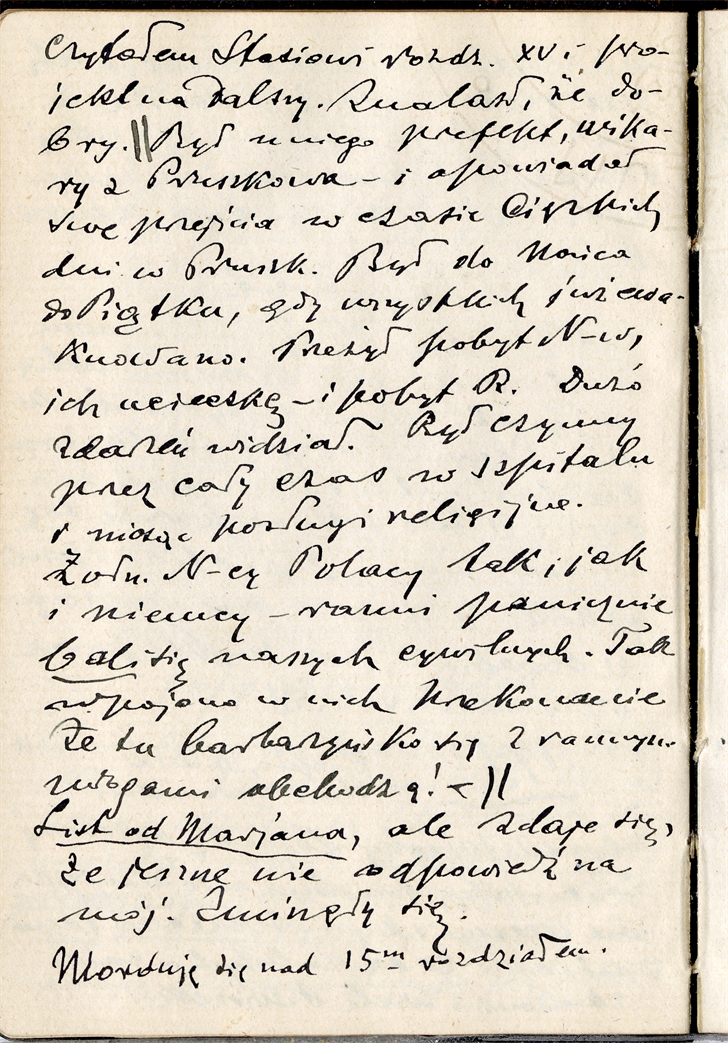 Czytałem Stasiowi rozdz. XV i pro-
jekt na dalszy. Znalazł, że do-
bry. || Był u mnie prefekt, wika-
ry z Pruszkowa – i opowiadał
swe przejścia w czasie Ciężkich
dni w Pruszk. Był do końca
do Piątku, gdy wszystkich ewa-
kuowano. Przeżył pobyt N-ów,
ich ucieczkę – i pobyt R. Dużo
zdarzeń widział. Był czynny
przez cały czas w szpitalu
i niosąc posługi religijne.
Żołn. N-cy Polacy tak, jak
i niemcy – ranni panicznie
bali się naszych cywilnych. Tak
wpojono w nich przekonanie
że tu barbarzyńsko się z rannym.
wrogami obchodzą! – ||
List od Marjana, ale zdaje się,
że jeszcze nie odpowiedź na
mój. Zminęły się.
Morduję się nad 15m rozdziałem.